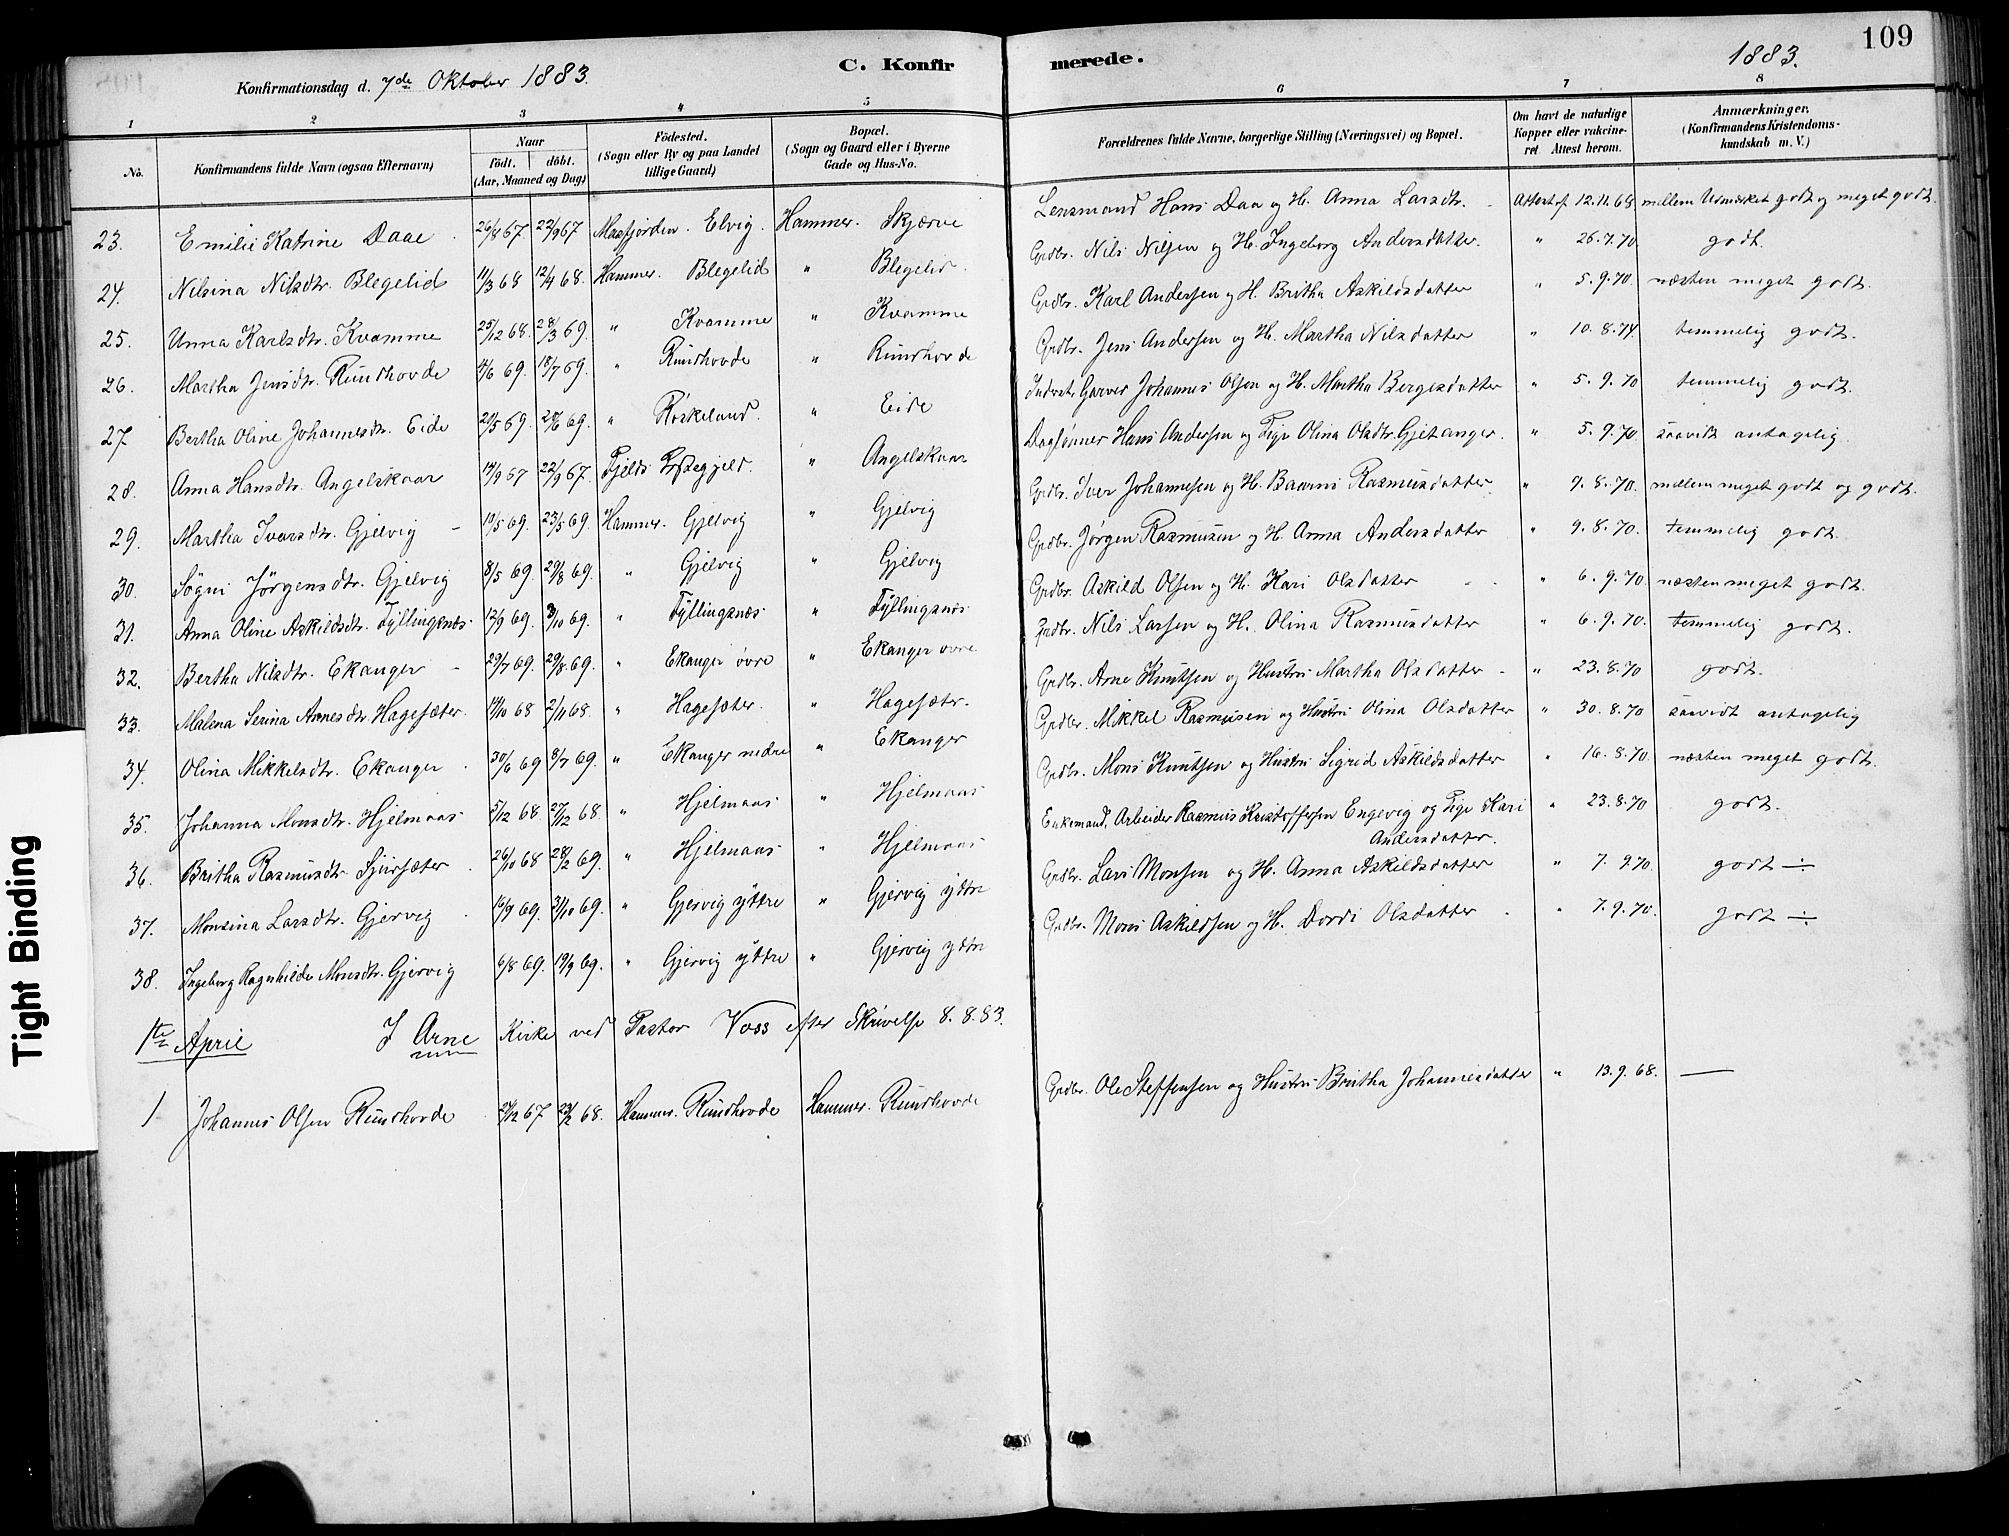 109
C. Konfirmerede.
1883.
Konfirmationsdag d. 7de Oktober 1883.
1 2 3 4 5 6 7 8
No. Konfirmandens fulde Navn (ogsaa Efternavn) Naar födt. döbt. (Aar, Maaned og Dag) Födested. (Sogn eller By og paa Landet tillige Gaard) Bopæl. (Sogn og Gaard eller i Byerne Gade og Hus-No. Forældrenes fulde Navne, borgerlige Stilling (Næringsvei) og Bopæl. Om havt de naturlige Kopper eller vakcineret Attest herom. Anmærkninger. (Konfirmandens Kristendomskundskab m. V.)
23. Emilie Katrine Daae 26/8 67 22/9 67 Masfjorden. Elvig. Hammer. Skjærve Lensmand Hans Daa og H. Anna Larsdtr. Attest af 12.11.68 mellem Udmærket godt og meget godt.
24. Nilsina Nilsdtr. Blegelid 11/3 68 12/4 68. Hammer. Blegelid " Blegelid. Grdbr. Nils Nilsen og H. Ingeborg Andersdatter. " 26.7.70. godt.
25. Unna Karlsdtr. Kvamme 25/12 68. 28/3 69. " Kvamme " Kvamme Grdbr. Karl Andersen og H. Britha Askildsdatter " 5.9.70. næsten meget godt.
26. Martha Jensdtr. Rundhovde 14/6 69. 18/7 69. " Rundhovde " Rundhovde Grdbr. Jens Andersen og H. Martha Nilsdatter " 10.8.74. temmelig godt.
27 Bertha Oline Johannesdtr. Eide 20/5 69. 20/6 69. " Röskeland. " Eide Indvst. Garver Johannes Olsen og H. Martha Bergesdatter " 5.9.70 temmelig godt.
28. Anna Hansdtr. Angelskaar 14/9 67 22/9 67. Fjelds Præstegjeld. " Angelskaar Daglønner Hans Andersen og Pige Olina Olsdtr. Gjetanger. " 5.9.70. saavidt antagelig.
29. Martha Iversdtr. Gjelvig 10/5 69. 23/5 69. Hammer. Gjelvig " Gjelvig Grdbr. Iver Johannesen og H. Rasmusdatter " 9.8.70. mellem meget godt og godt.
30. Søgni Jørgensdtr. Gjelvig 8/5 69. 29/8 69. " Gjelvig " Gjelvig Grdbr. Jørgen Rasmusen og H. Anna Andersdatter " 9.8.70. temmelig godt.
31. Anna Oline Askildsdtr. Fyllingsnæs. 12/9 69. 3/10 69. " Fyllingsnæs " Fyllingsnæs Grdbr. Askild Olsen og H. Kari Olsdatter " 6.9.70. næsten meget godt.
32. Bertha Nilsdtr. Ekanger 29/7 69. 29/8 69. " Ekanger övre " Ekanger övre Grdbr. Nils Larsen og H. Olina Rasmusdatter " 6.9.70. temmelig godt.
33. Malena Serina Arnesdtr. Hagesæter. 14/10 68 2/11 68. " Hagesæter. " Hagesæter. Grdbr. Arne Knutsen og Hustru Martha Olsdatter " 23.8.70 godt.
34. Olina Mikkelsdtr. Ekanger 30/6 69 8/7 69. " Ekanger nedre " Ekanger Grdbr. Mikkel Rasmusen og Hustru Olina Olsdatter " 30.8.70 saavidt antagelig
35. Johanna Monsdtr. Hjelmaas 5/12 68 27/12 68. " Hjelmaas " Hjelmaas Grdbr. Mons Knutsen og Hustru Sigrid Askildsdatter " 16.8.70. næsten meget godt.
36. Britha Rasmusdtr. Sjursæter. 26/10 68 28/2 69. " Hjelmaas " Hjelmaas Enkemand, Arbeider Rasmus Kristoffersen Engevig og Pige Kari Andersdatter. " 23.8.70 godt.
37. Monsina Larsdtr. Gjervig 10/9 69. 31/10 69. " Gjervig yttre " Gjervig yttre Grdbr. Lars Monsen og H. Anna Askildsdatter " 7.9.70. godt ÷
38. Ingeborg Ragnhilde Monsdtr. Gjervig 6/8 69. 19/9 69. " Gjervig yttre " Gjervig yttre Grdbr. Mons Askildsen og H. Dordi Olsdatter " 7.9.70. godt ÷
1te April I Arne Kirke ved Pastor Voss efter Skrivelse 8.8.83.
1 Johannes Olsen Rundhovde 27/12 67 23/2 68. Hammer. Rundhovde Hammer. Rundhovde Grdbr. Ole Steffensen og Hustru Britha Johannesdatter " 13.9.68. —
Tight Binding